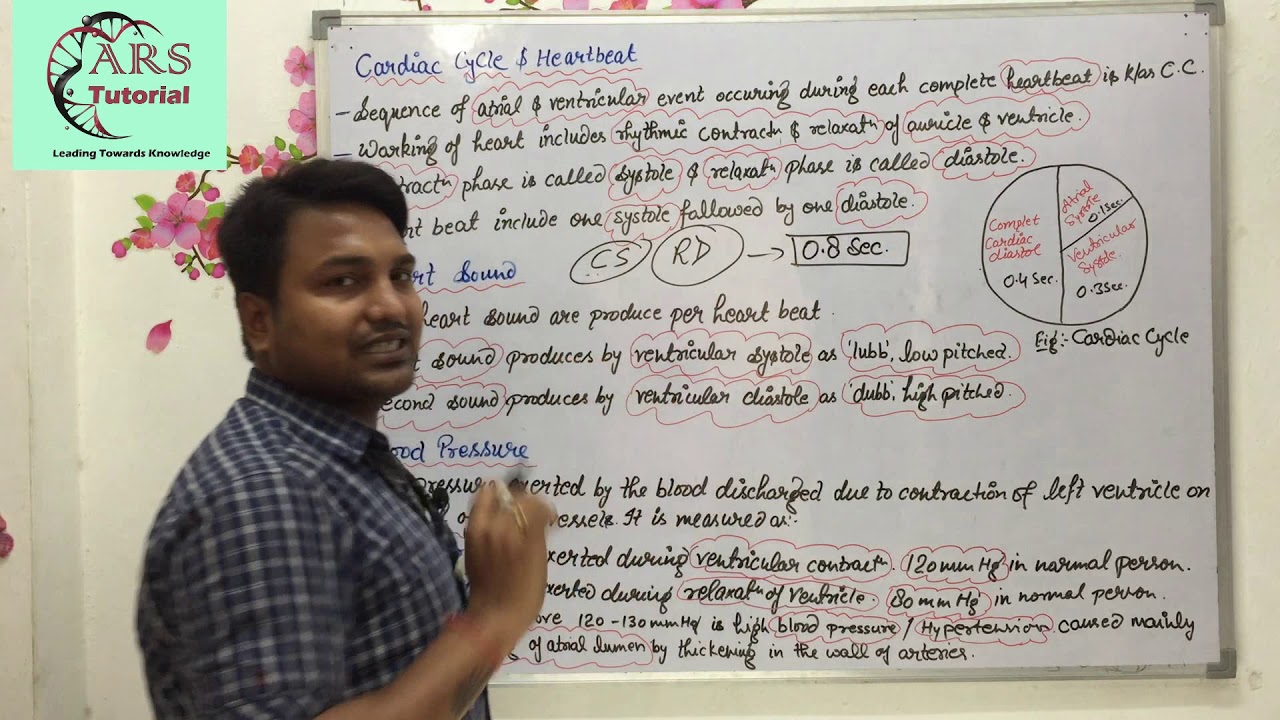 ARS
Tutorial
Leading Towards Knowledge
Cardiac Cycle & Heartbeat
- Sequence of atrial & ventricular event occuring during each complete heartbeat is k/as C.C.
- Working of heart includes rhythmic contractn & relaxatn of auricle & ventricle.
phase is called systole & relaxatn phase is called diastole.
beat include one systole followed by one diastole.
CS RD → 0.8 Sec.
Sound
heart sound are produce per heart beat.
sound produces by ventricular systole as 'lubb', low pitched.
sound produces by ventricular diastole as 'dubb', high pitched.
Pressure
exerted by the blood discharged due to contraction of left ventricle on
It is measured as:-
during ventricular contractn. 120 mm Hg in normal person.
during relaxatn of ventricle. 80 mm Hg in normal person.
120-130 mmHg is high blood pressure / Hypertension caused mainly
of atrial lumen by thickening in the wall of arteries.
Atrial
Systole
0.1 Sec.
Complet
Cardiac
diastol
0.4 Sec.
Ventricular
Systole.
0.3 Sec.
Fig:- Cardiac Cycle